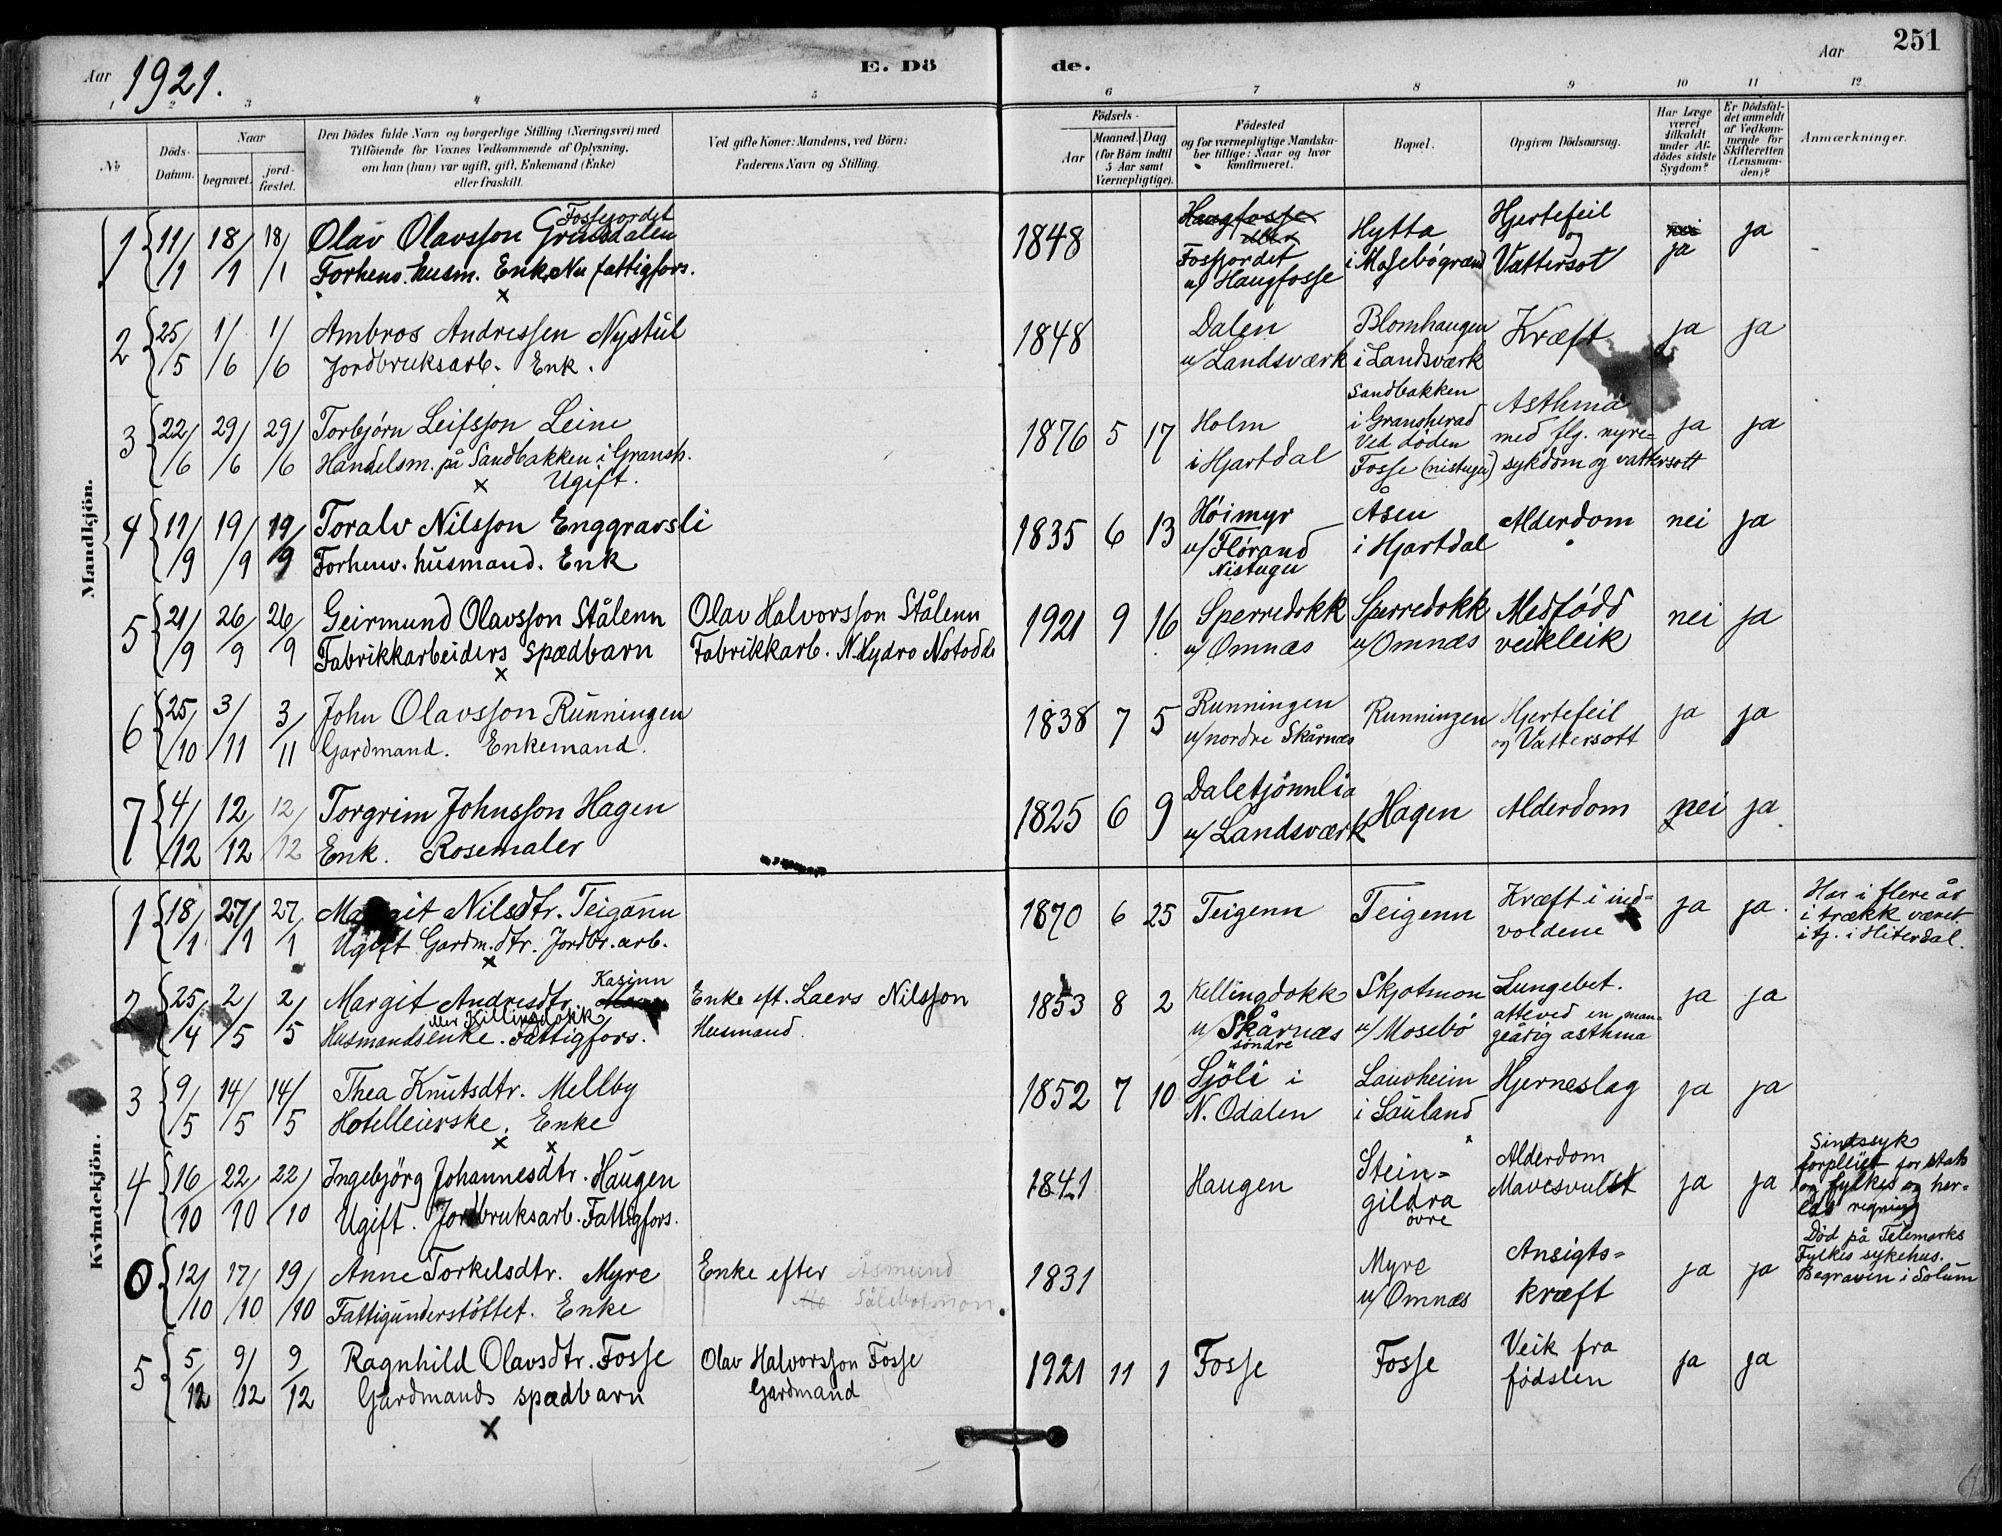 Aar 1921.
E. Dö
de.
Aar
251
1 2 3 4 5
6 7 8 9 10 11 12
No
Döds-Datum.
Naar
begravet.
jord-fæstet.
Den Dödes fulde Navn og borgerlige Stilling (Næringsvei) med
Tilföiende for Voxnes Vedkommende af Oplysning,
om han (hun) var ugift, gift, Enkemand (Enke)
eller fraskilt.
Ved gifte Koner: Mandens, ved Börn:
Faderens Navn og Stilling.
Födsels-
Aar
Maaned. Dag
(for Börn indtil
5 Aar samt
Værnepligtige).
Födested
og for værnepligtige Mandska-
ber tillige: Naar og hvor
konfirmeret.
Bopæl.
Opgiven Dödsaarsag.
Har Læge
været
tilkaldt
under Af-
dödes sidste
Sygdom?
Er Dödsfal-
det anmeldt
af Vedkom-
mende for
Skifteretten
(Lensman-
den)?
Anmærkninger.
Mandkjön.
1 11/1 18/1 18/1 Olav Olavsson Grinsdalen Fossejordet 1848 Haugfosse Hytta Hjertefeil nei ja
Forhenv. husm. Enk. Nu fattigfors. Fosfjordet i Mosebögrend og ja
u/ Haugfosse Vattersot
2 25/5 1/6 1/6 Ambros Andressen Nystul 1848 Dalen Blomhaugen Kræft ja ja
Jordbruksarb. Enk. u/Landsværk i Landsværk
3 22/6 29/6 29/6 Torbjørn Leifsson Leine 1876 5 17 Holm Sandbakken Asthma ja ja
Handelsm. på Sandbakken i Gransh. i Hjartdal i Gransherad med flg. nyre-
Ugift. Ved döden sykdom og vattersott
Fosse (nistugu)
4 11/9 19/9 19/9 Toralv Nilsson Enggravsli 1835 6 13 Höimyr Åsen Alderdom nei ja
Forhenv. husmand. Enk u/ Flörand i Hjartdal
Nistugu
5 21/9 26/9 26/9 Geirmund Olavsson Stålenn Olav Halvorsson Stålenn 1921 9 16 Sperredokk Sperredokk Medfödd nei ja
Fabrikkarbeiders spædbarn Fabrikkarb. N. Hydro Notodd. u/ Omnæs u/Omnæs veikleik
6 25/10 3/11 3/11 John Olavsson Runningen 1838 7 5 Runningen Runningen Hjertefeil ja ja
Gardmand. Enkemand. u/nordre Skårnæs og Vattersott
7 4/12 12/12 12/12 Torgrim Johnsson Hagen 1825 6 9 Daletjönnlia Hagen Alderdom nei ja
Enk. Rosemaler u/ Landsværk
Kvindekjön.
1 18/1 27/1 27/1 Margit Nilsdtr. Teigenn 1870 6 25 Teigenn Teigenn Kræft i ind- ja ja. Har i flere år
Ugift Gardm. dtr. Jordbr. arb. voldene i trækk været
i tj. i Hiterdal.
2 25/4 2/5 2/5 Margit Andresdtr. Kasinn Enke eft. Laers Nilsson 1853 8 2 Kellingdokk Skjotmon Lungebet. ja ja
eller Killingdokk
Husmandsenke. Fattigfors. Husmand. u/ Skårnæs u/Mosebö atteved en man-
söndre geårig asthma
3 9/5 14/5 14/5 Thea Knutsdtr. Mellby 1852 7 10 Sjöli i Lauvheim Hjerneslag ja ja
Hotelleierske. Enke N. Odalen i Sauland
4 16/10 22/10 22/10 Ingebjörg Johannesdtr. Haugen 1841 Haugen Stein- Alderdom ja ja Sindssyk
Ugift. Jordbruksarb. Fattigfors. gildra Mavesvulst forpleiet for stats
övre og fylkes og her-
eds regning
0 12/10 17/10 19/10 Anne Torkelsdtr. Myre Enke efter Åsmund 1831 Myre Ansigts- ja ja Död på Telemarks
Fattigunderstöttet. Enke Sälebotmon u/ Omnæs kræft Fylkes sykehus.
Begraven i Solum
5 5/12 9/12 9/12 Ragnhild Olavsdtr. Fosse Olav Halvorsson Fosse 1921 11 1 Fosse Fosse Veik fra ja ja
Gardmands spædbarn Gardmand födslen